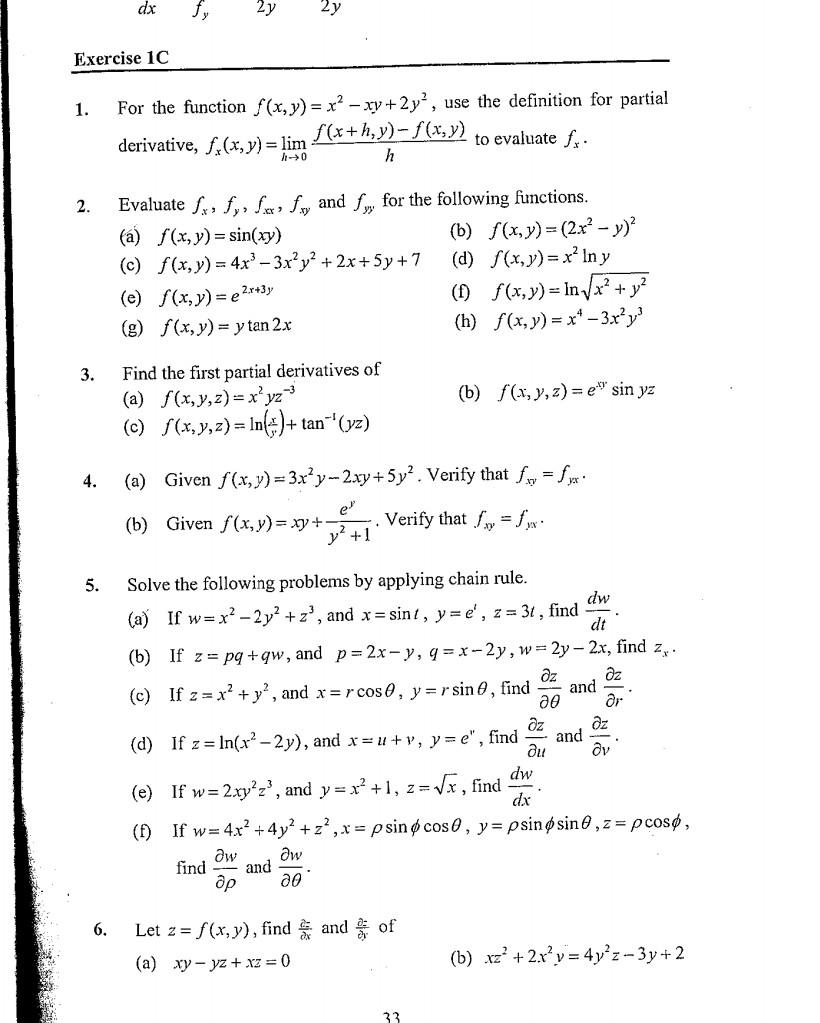 dx f_y 2y 2y
Exercise 1C
1. For the function f(x,y) = x² − xy + 2y², use the definition for partial
derivative, f_x(x,y) = lim_{h→0} (f(x+h,y) − f(x,y))/h to evaluate f_x.
2. Evaluate f_x, f_y, f_xx, f_xy and f_yy for the following functions.
(a) f(x,y) = sin(xy) (b) f(x,y) = (2x² − y)²
(c) f(x,y) = 4x³ − 3x²y² + 2x + 5y + 7 (d) f(x,y) = x² ln y
(e) f(x,y) = e^{2x+3y} (f) f(x,y) = ln√(x² + y²)
(g) f(x,y) = y tan 2x (h) f(x,y) = x⁴ − 3x²y³
3. Find the first partial derivatives of
(a) f(x,y,z) = x²yz⁻³ (b) f(x,y,z) = e^{xy} sin yz
(c) f(x,y,z) = ln(x/y) + tan⁻¹(yz)
4. (a) Given f(x,y) = 3x²y − 2xy + 5y². Verify that f_xy = f_yx.
(b) Given f(x,y) = xy + e^y/(y² + 1). Verify that f_xy = f_yx.
5. Solve the following problems by applying chain rule.
(a) If w = x² − 2y² + z³, and x = sin t, y = e^t, z = 3t, find dw/dt.
(b) If z = pq + qw, and p = 2x − y, q = x − 2y, w = 2y − 2x, find z_x.
(c) If z = x² + y², and x = r cos θ, y = r sin θ, find ∂z/∂θ and ∂z/∂r.
(d) If z = ln(x² − 2y), and x = u + v, y = e^v, find ∂z/∂u and ∂z/∂v.
(e) If w = 2xy²z³, and y = x² + 1, z = √x, find dw/dx.
(f) If w = 4x² + 4y² + z², x = ρ sin φ cos θ, y = ρ sin φ sin θ, z = ρ cos φ,
find ∂w/∂ρ and ∂w/∂θ.
6. Let z = f(x,y), find ∂z/∂x and ∂z/∂y of
(a) xy − yz + xz = 0 (b) xz² + 2x²y = 4y²z − 3y + 2
33